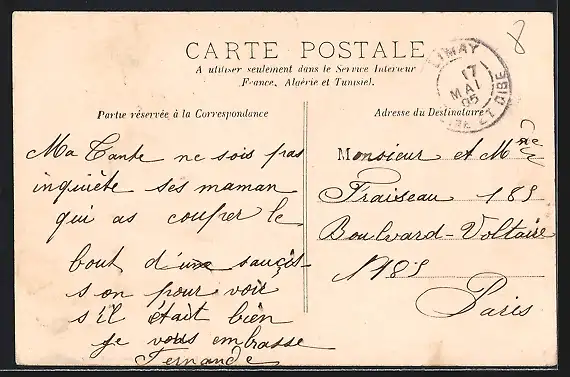 CARTE POSTALE
A utiliser seulement dans le Service Interieur
France, Algérie et Tunisie).
Partie réservée à la Correspondance
Ma Tante ne sois pas
inquiète ses maman
qui as coupér le
bout d'une sauçis
son pour voir
s'il était bien
je vous embrasse
Fernande
LIMAY
17
MAI
05
SEINE ET OISE
8
Adresse du Destinataire
Monsieur et Mme
Fraiseau 185
Boulvard-Voltaire
N 185
Paris